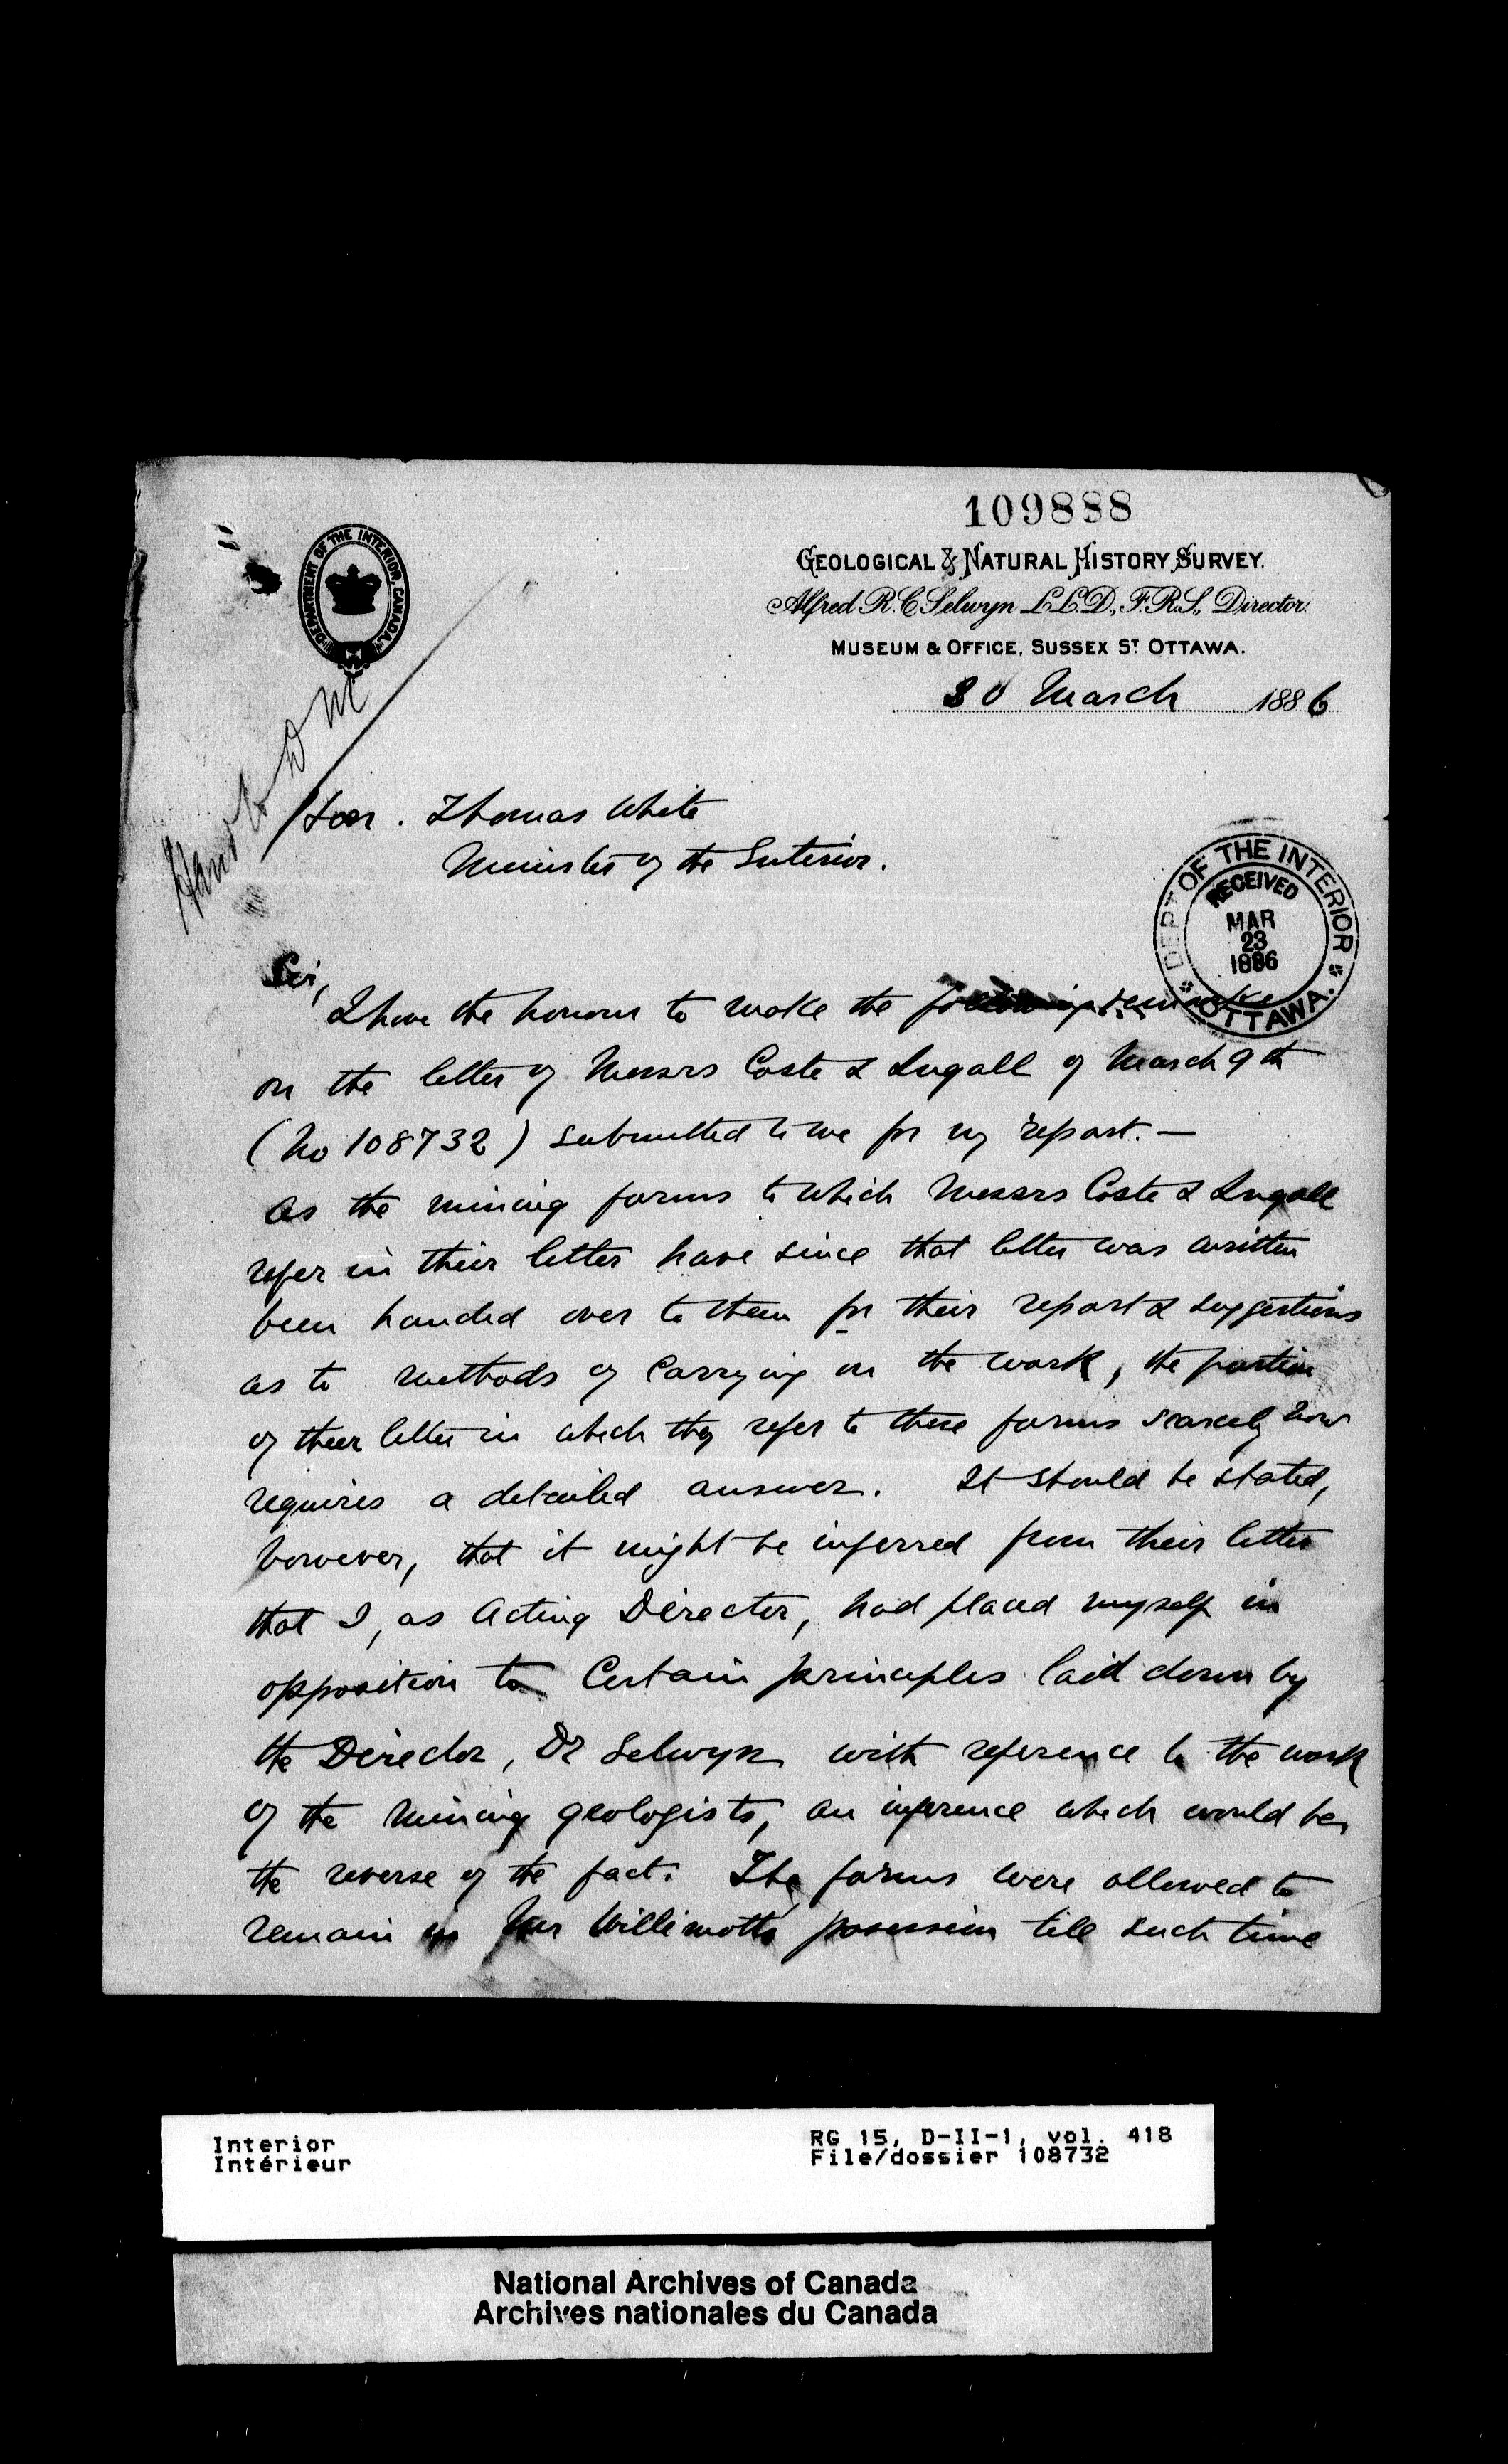 109888
DEPARTMENT OF THE INTERIOR, CANADA.
GEOLOGICAL & NATURAL HISTORY SURVEY.
Alfred R. C. Selwyn LL.D., F.R.S., Director.
MUSEUM & OFFICE, SUSSEX ST. OTTAWA.
30 March 1886
Hon. Thomas White
Minister of the Interior.
DEPT OF THE INTERIOR
RECEIVED
MAR
23
1886
OTTAWA.
Sir,
I have the honour to make the following remarks
on the letter of Messrs Coste & Ingall of March 9th
(No 108732) submitted to me for my report. —
As the mining forms to which Messrs Coste & Ingall
refer in their letter have since that letter was written
been handed over to them for their report & suggestions
as to methods of carrying on the work, the portion
of their letter in which they refer to these forms scarcely now
requires a detailed answer. It should be stated,
however, that it might be inferred from their letter
that I, as Acting Director, had placed myself in
opposition to certain principles laid down by
the Director, Dr Selwyn with reference to the work
of the mining geologists, an inference which would be
the reverse of the fact. The forms were allowed to
remain in Mr Willimotts possession till such time
Interior
Intérieur
RG 15, D-II-1, vol. 418
File/dossier 108732
National Archives of Canada
Archives nationales du Canada